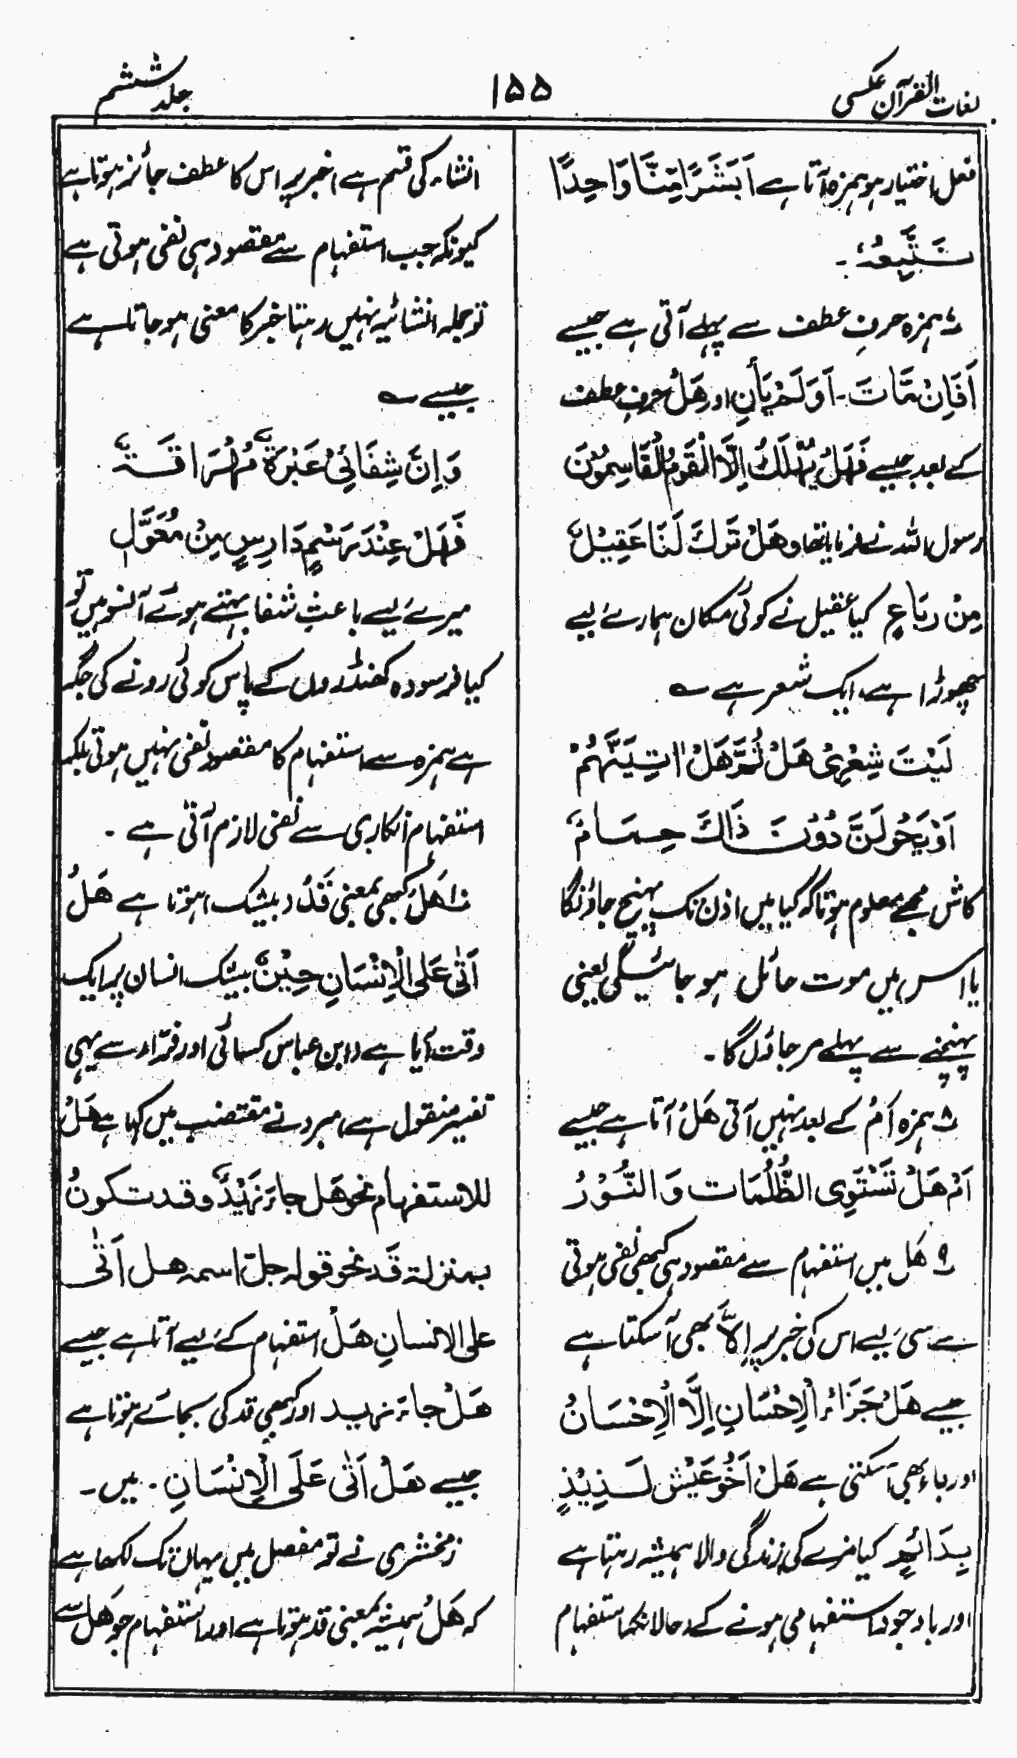 لغات القرآن عکسی
۱۵۵
جلد ششم
فعل اختیار ہو ہمزہ آتا ہے اَبَشَرًا مِّنَّا وَاحِدًا
نَتَّبِعُہٗ۔
۷ ہمزہ حرفِ عطف سے پہلے آتی ہے جیسے
اَفَاِنْ مَّاتَ۔ اَوَلَمْ یَأنِ اور ھَلْ حرفِ عطف
کے بعد جیسے فَھَلْ یُھْلَکُ اِلَّا الْقَوْمُ الْفَاسِقُوْنَ
رسول اللہ نے فرمایا تھا وھَلْ تَرَكَ لَنَا عَقِیْلٌ
مِنْ رِبَاعٍ کیا عقیل نے کوئی مکان ہمارے لیے
چھوڑا ہے، ایک شعر ہے ؎
لَیْتَ شِعْرِیْ ھَلْ ثُمَّ ھَلْ اٰتِیَنَّھُمْ
اَوْ یَحُوْلَنَّ دُوْنَ ذَاكَ حِمَامٌ
کاش مجھے معلوم ہوتا کہ کیا میں اذن تک پہنچ جاؤنگا
یا اس میں موت حائل ہو جائیگی یعنی
پہنچنے سے پہلے مر جاؤں گا۔
۸ ہمزہ اَمْ کے بعد نہیں آتی ھَلْ آتا ہے جیسے
اَمْ ھَلْ تَسْتَوِی الظُّلُمَات وَ النُّوْرُ
۹ ھَل میں استفہام سے مقصود ہی کبھی نفی ہوتی
ہے سی لیے اس کی خبر پر اِلاَّ بھی آسکتا ہے
جیسے ھَلْ جَزَائُ الْاِحْسَانِ اِلَّا الْاِحْسَانُ
اور باء بھی آسکتی ہے ھَلْ اَخُوْ عَیْش لَذِیْذٍ
بِدَائِمٍ کیا مزے کی زندگی والا ہمیشہ رہتا ہے
اور باوجود استفہامی ہونے کے (حالانکہ استفہام
انشاء کی قسم ہے) خبر پر اس کا عطف جائز ہوتا ہے
کیونکہ جب استفہام سے مقصود ہی نفی ہوتی ہے
تو جملہ انشائیہ نہیں رہتا خبر کا معنی ہو جاتا ہے
جیسے ؎
وَاِنَّ شِفَائِیْ عَبْرَۃٌ مُھْرَاقَۃٌ
فَھَلْ عِنْدَ رَسْمٍ دَارِسٍ مِنْ مُعَوَّلِ
میرے لیے باعثِ شفا بہتے ہوئے آنسو ہیں تو
کیا فرسودہ کھنڈروں کے پاس کوئی رونے کی جگہ
ہے ہمزہ سے استفہام کا مقصود نفی نہیں ہوتی بلکہ
استفہام انکاری سے نفی لازم آتی ہے۔
۱۰ ھَلْ کبھی بمعنی قَدْ (بیشک) ہوتا ہے ھَلْ
اَتٰی عَلَی الْاِنْسَانِ حِیْنٌ بیشک انسان پر ایک
وقت آیا ہے (ابن عباس کسائی اور فرّاء سے یہی
تفسیر منقول ہے) مبرد نے مقتضب میں کہا ہے ھَلْ
للاستفہام نحو ھَل جاءَ زَیْدٌ وقد تکونُ
بمنزلۃ قَد نحو قولہ جلّ اسمہ ھل اَتٰی
علی الانسانِ ھَلْ استفہام کے لیے آتا ہے جیسے
ھَلْ جاءَ زید اور کبھی قد کی بجائے ہوتا ہے
جیسے ھَلْ اَتٰی عَلَی الْاِنْسَانِ۔ میں۔
زمخشری نے تو مفصل میں یہاں تک لکھا ہے
کہ ھَلْ ہمیشہ بمعنی قد ہوتا ہے اور استفہام جو ھَل سے